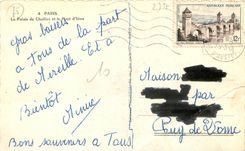 4 PARIS
Le Palais de Chaillot et le Pont d'Iéna
RÉPUBLIQUE FRANÇAISE
12f
Gros baisers
à tous de la part
de Mireille. Et à
Bientôt
Bons souvenirs à Tous
Maison
par
Puy de Dôme